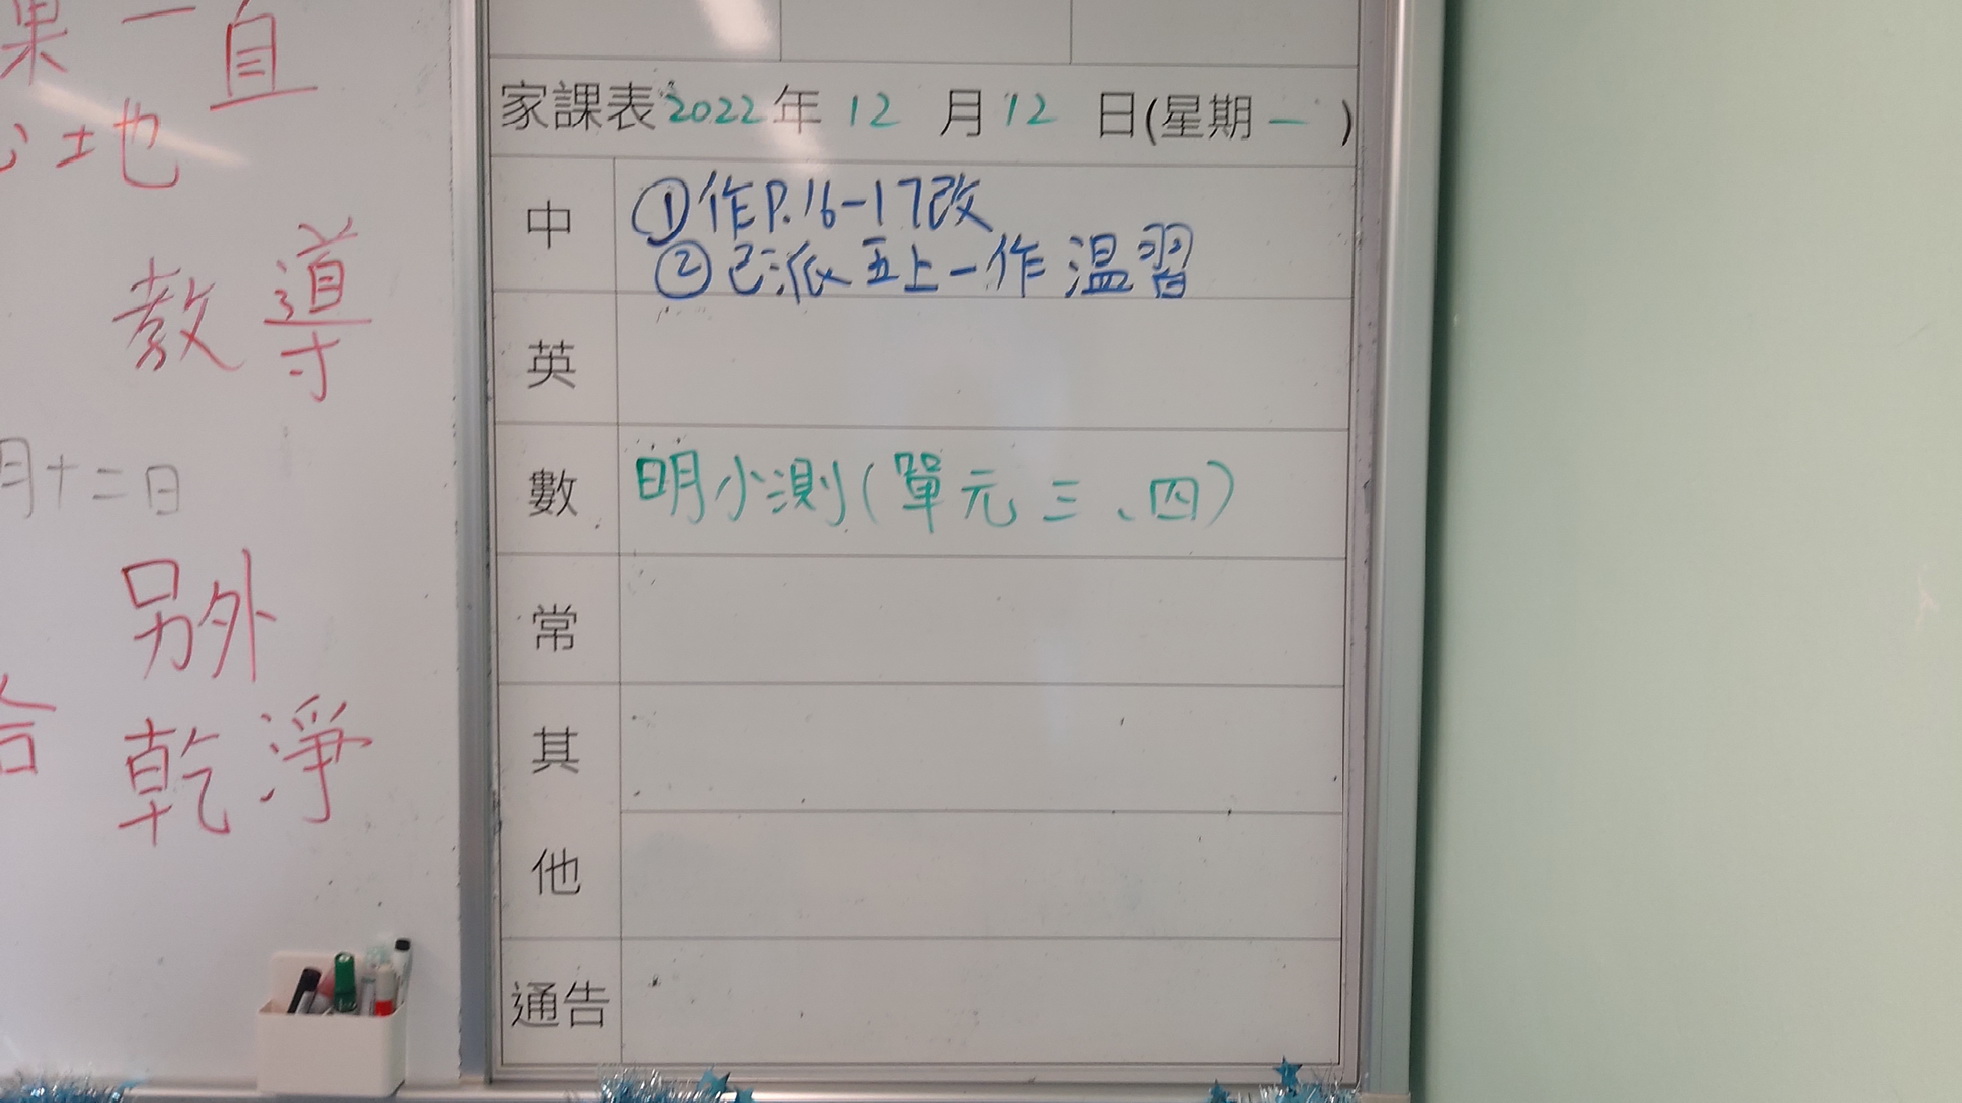 果一直
地
教導
月十二日
另外
乾淨
家課表2022年12月12日(星期一)
中
①作P.16-17改
②已派五上一作溫習
英
數
明小測(單元三、四)
常
其
他
通告